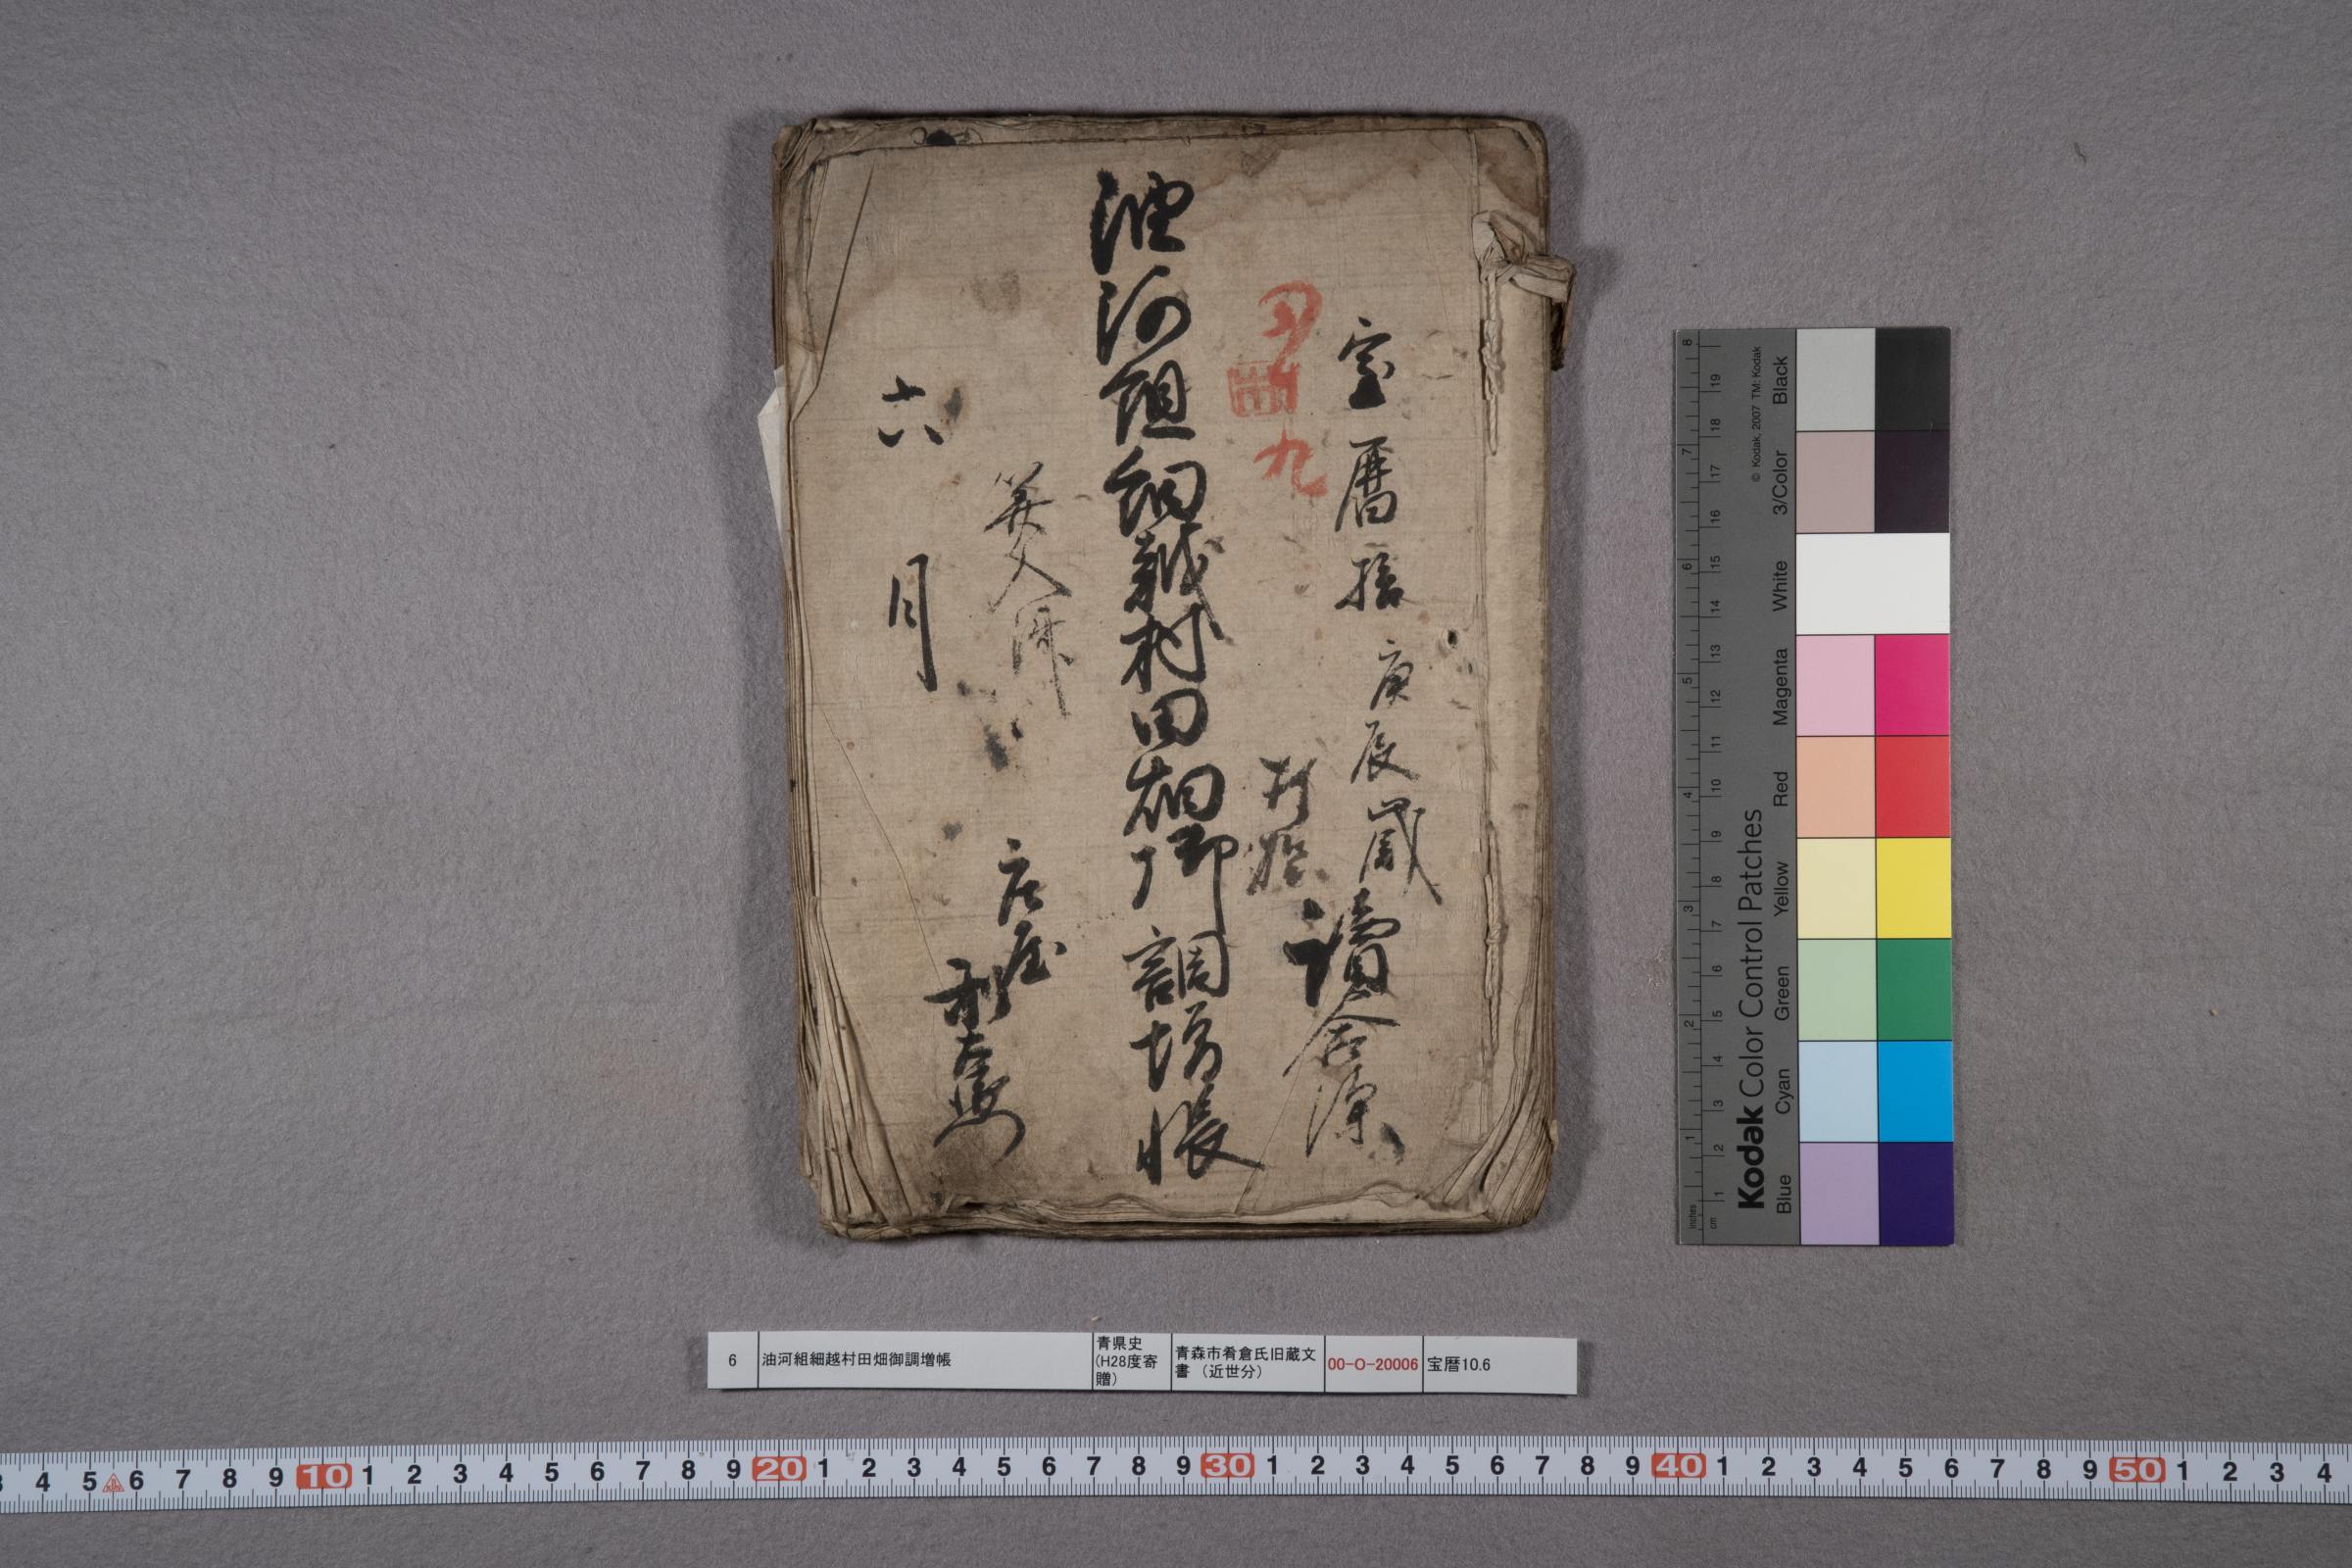 宝暦拾庚辰歳
讀合済
油河組細越村田畑御調増帳
六月
庄屋
九
6 油河組細越村田畑御調増帳 青県史(H28度寄贈) 青森市肴倉氏旧蔵文書(近世分) 00-O-20006 宝暦10.6
Kodak Color Control Patches
© Kodak, 2007 TM: Kodak
Blue Cyan Green Yellow Red Magenta White 3/Color Black
inches 1 2 3 4 5 6 7 8
cm 1 2 3 4 5 6 7 8 9 10 11 12 13 14 15 16 17 18 19
3 4 5 6 7 8 9 10 1 2 3 4 5 6 7 8 9 20 1 2 3 4 5 6 7 8 9 30 1 2 3 4 5 6 7 8 9 40 1 2 3 4 5 6 7 8 9 50 1 2 3 4